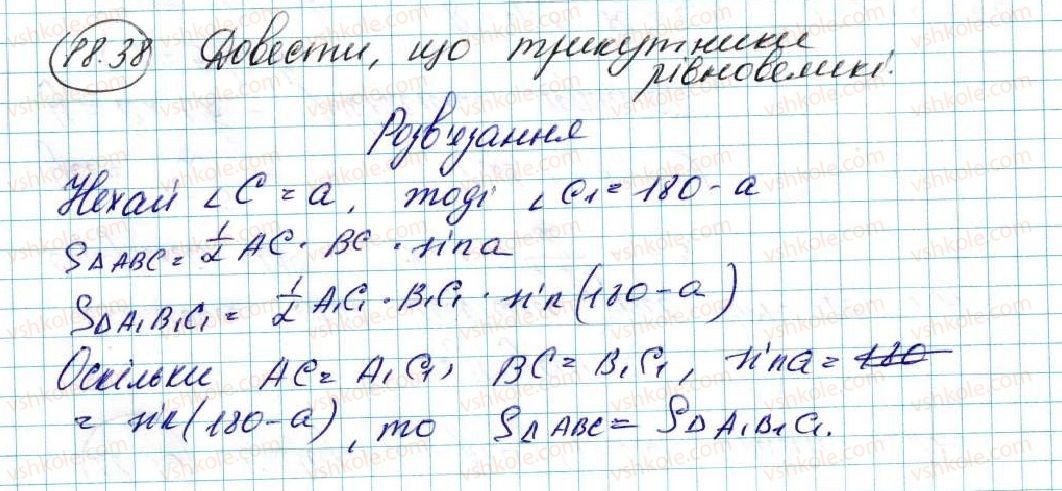 18.38 Довести, що трикутники
рівновеликі.
Розв'язання
Нехай ∠C = a, тоді ∠C₁ = 180 - a
S△ABC = 1/2 AC · BC · sin a
S△A₁B₁C₁ = 1/2 A₁C₁ · B₁C₁ · sin(180 - a)
Оскільки AC = A₁C₁, BC = B₁C₁, sin a = ~~180~~
= sin(180 - a), то S△ABC = S△A₁B₁C₁.